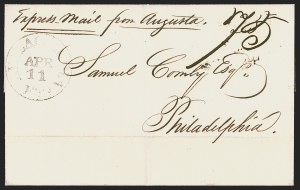 Express Mail from Augusta.
75
APR
11
Samuel Comly Esqr.
Philadelphia.